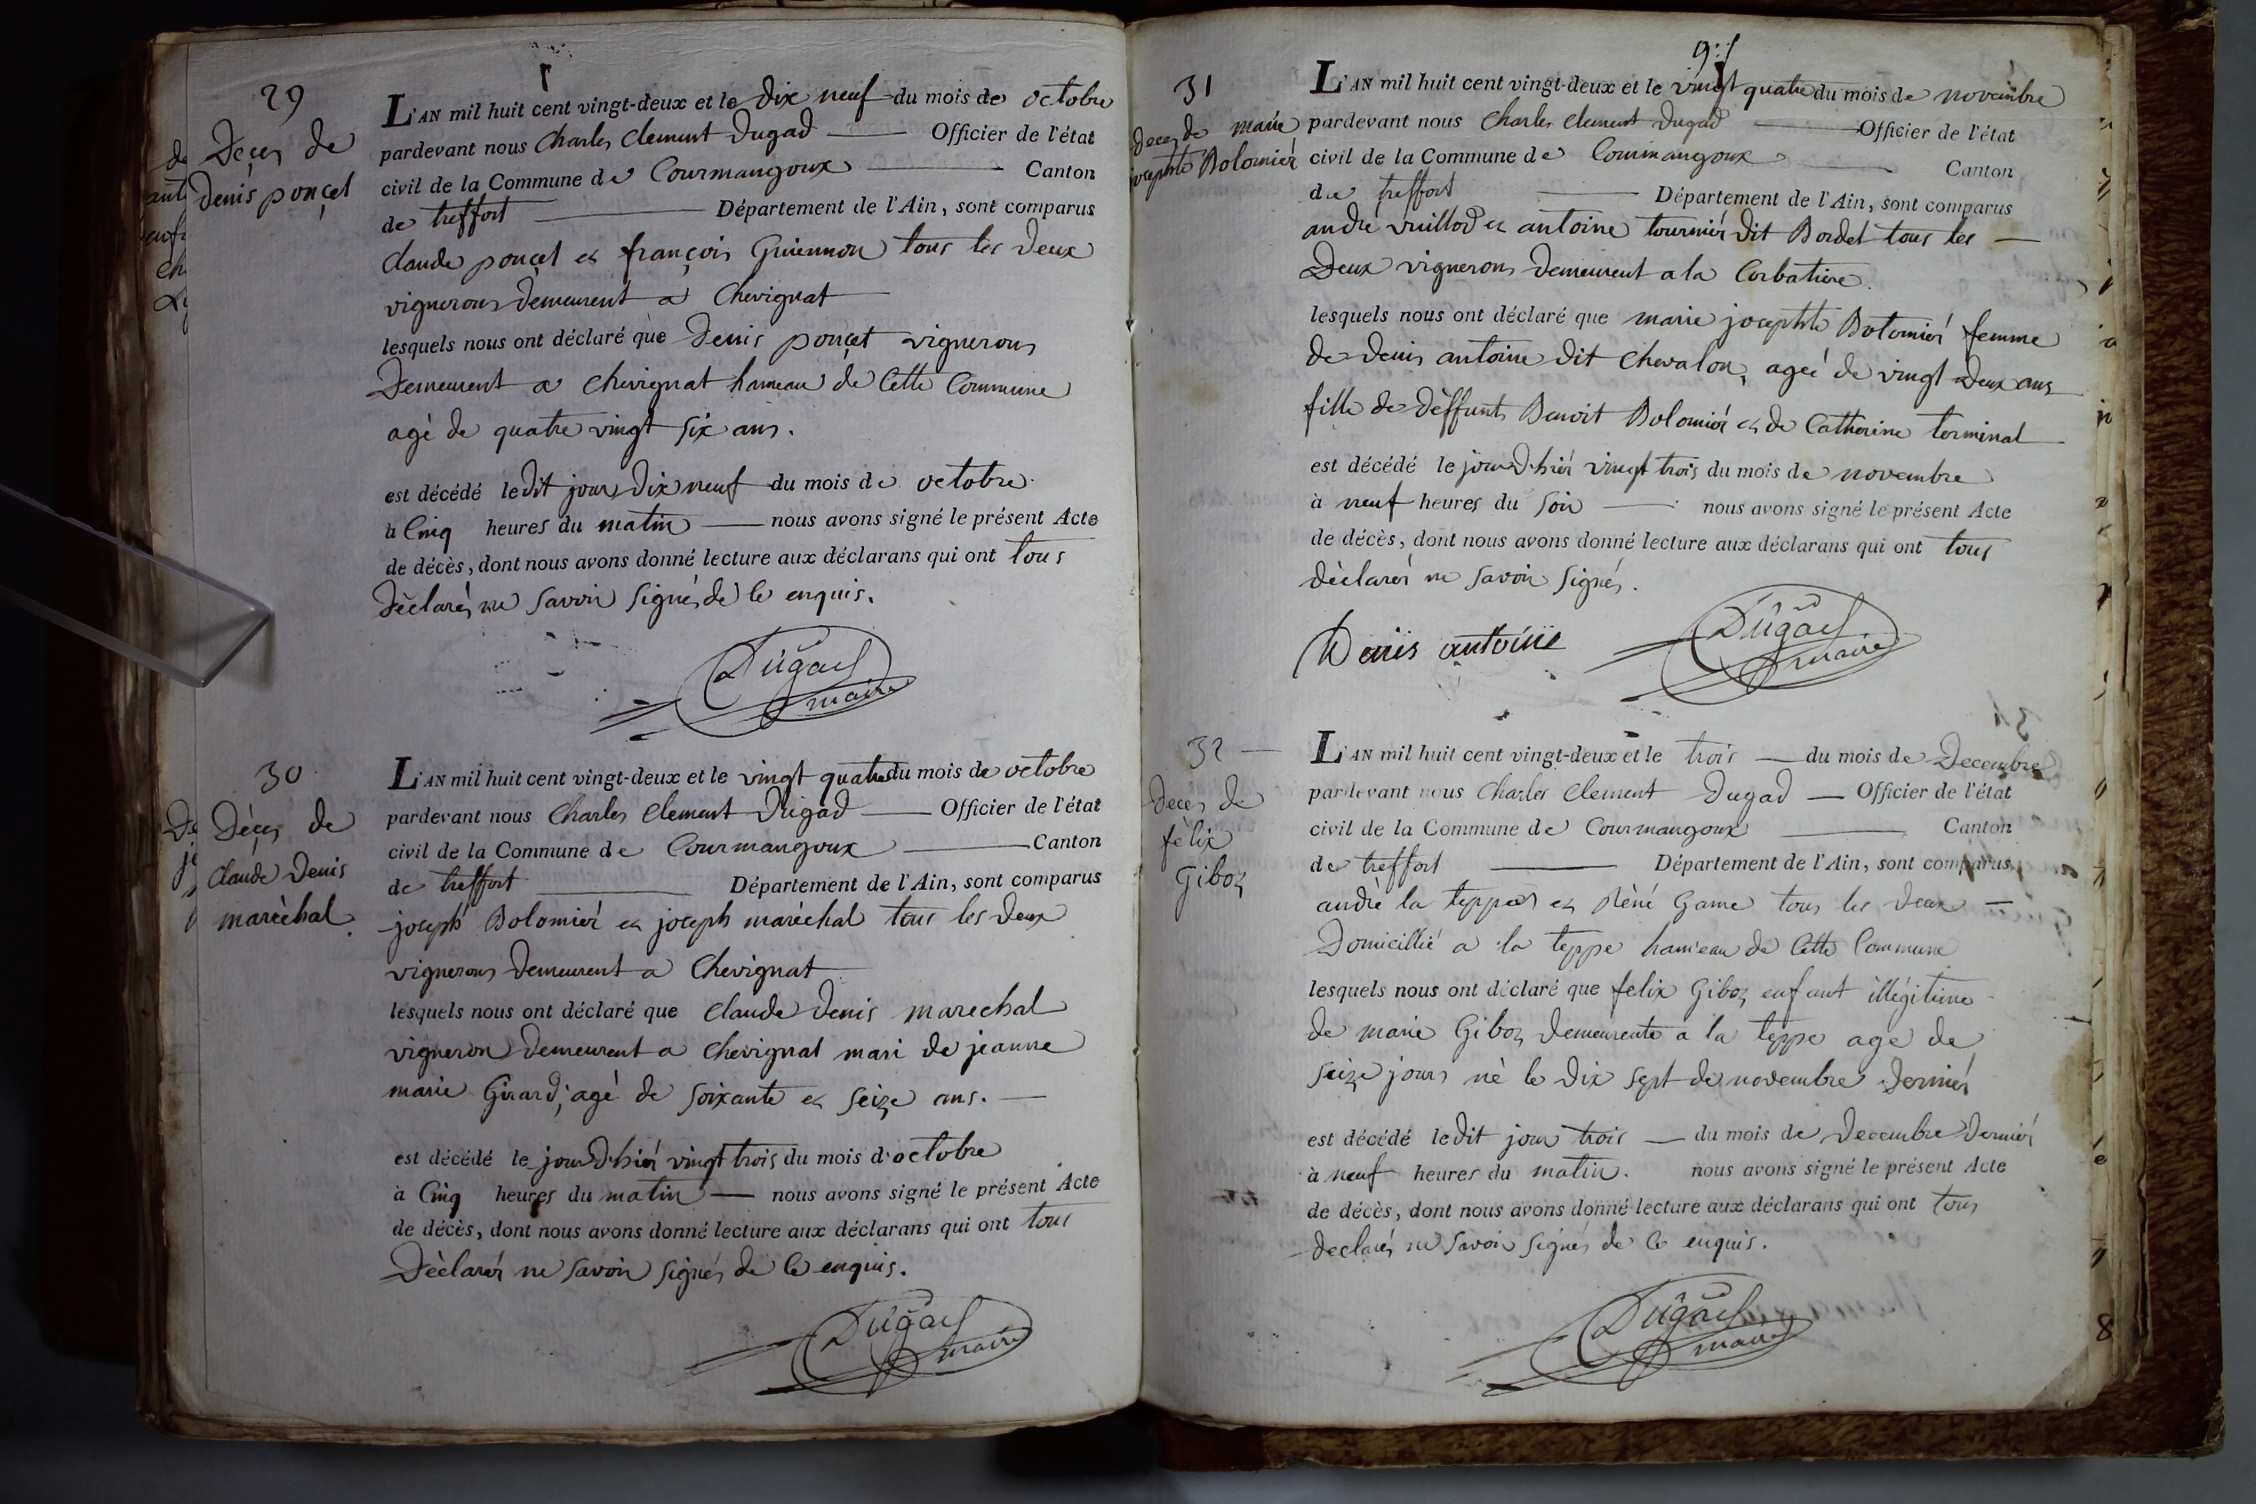 29
Deces de
denis ponçet
L'AN mil huit cent vingt-deux et le dix neuf du mois de octobre
pardevant nous Charles Clement Dugad Officier de l'état
civil de la Commune de Courmangoux Canton
de treffort Département de l'Ain, sont comparus
claude ponçet et françois Guiennon tous les deux
vignerons demeurent a Chevignat
lesquels nous ont déclaré que denis ponçet vignerons
Demeurent a chevignat hameau de Cette Commune
agé de quatre vingt six ans.
est décédé ledit jour dix neuf du mois de octobre
à Cinq heures du matin nous avons signé le présent Acte
de décès, dont nous avons donné lecture aux déclarans qui ont tous
Déclarés ne savoir signés de ce enquis.
Dugad
maire
30
Déces de
claude Denis
maréchal
L'AN mil huit cent vingt-deux et le vingt quatre du mois de octobre
pardevant nous Charles Clement Dugad Officier de l'état
civil de la Commune de Courmangoux Canton
de treffort Département de l'Ain, sont comparus
joseph Bolomiér et joseph maréchal tous les deux
vignerons demeurent a Chevignat
lesquels nous ont déclaré que claude denis marechal
vigneron demeurent a chevignat mari de jeanne
marie Girard, agé de soixante et seize ans.
est décédé le jour d'hiér vingt trois du mois d'octobre
à Cinq heures du matin nous avons signé le présent Acte
de décès, dont nous avons donné lecture aux déclarans qui ont tous
Déclarér ne savoir signés de ce enquis.
Dugad
maire
31
Deces de marie
josephte Bolomiér
L'AN mil huit cent vingt-deux et le vingt quatre du mois de novembre
pardevant nous Charles Clement Dugad Officier de l'état
civil de la Commune de Courmangoux Canton
de treffort Département de l'Ain, sont comparus
andré vuillod et antoine tourniér dit Bordet tous les
Deux vignerons demeurent a la Corbatiere
lesquels nous ont déclaré que marie josephte Bolomiér femme
de denis antoine dit chevalon, ageé de vingt deux ans
fille de déffunts Benoit Bolomiér et de Catherine terminal
est décédé le jour d'hiér vingt trois du mois de novembre
à neuf heures du soir nous avons signé le présent Acte
de décès, dont nous avons donné lecture aux déclarans qui ont tous
déclarér ne savoir signés.
Denis antoine
Dugad
maire
32
Deces de
félix
Giboz
L'AN mil huit cent vingt-deux et le trois du mois de Decembre
pardevant nous Charles Clement Dugad Officier de l'état
civil de la Commune de Courmangoux Canton
de treffort Département de l'Ain, sont comparus
andré la teppes et Réné Game tous les deux
Domicillié a la teppe hameau de Cette Commune
lesquels nous ont déclaré que felix Giboz enfant illégitime
de marie Giboz demeurente a la teppe age de
seize jours né le dix sept de novembre derniér
est décédé ledit jour trois du mois de Decembre derniér
à neuf heures du matin. nous avons signé le présent Acte
de décès, dont nous avons donné lecture aux déclarans qui ont tous
declarés ne savoir signés de ce enquis.
Dugad
maire